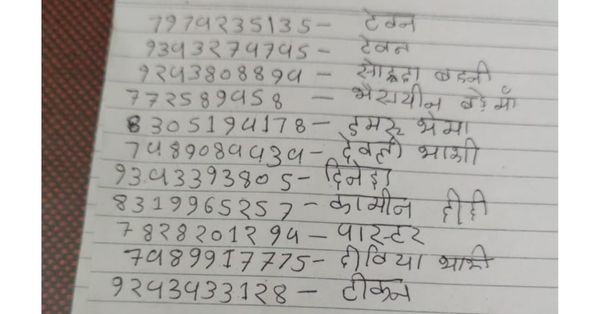 7974235135- टेवन
9393274795- टेवन
9293808894 - सोहद्रा बहनी
772589958 - भैसायीन बड़े माँ
8305194178- डमरू भेमा
7489084434- देवली भाभी
9343393805- दिनेश
8319965257- कामीन दीदी
7828201294- पास्टर
7489917775- दीविया भाभी
9293933128- टीकन